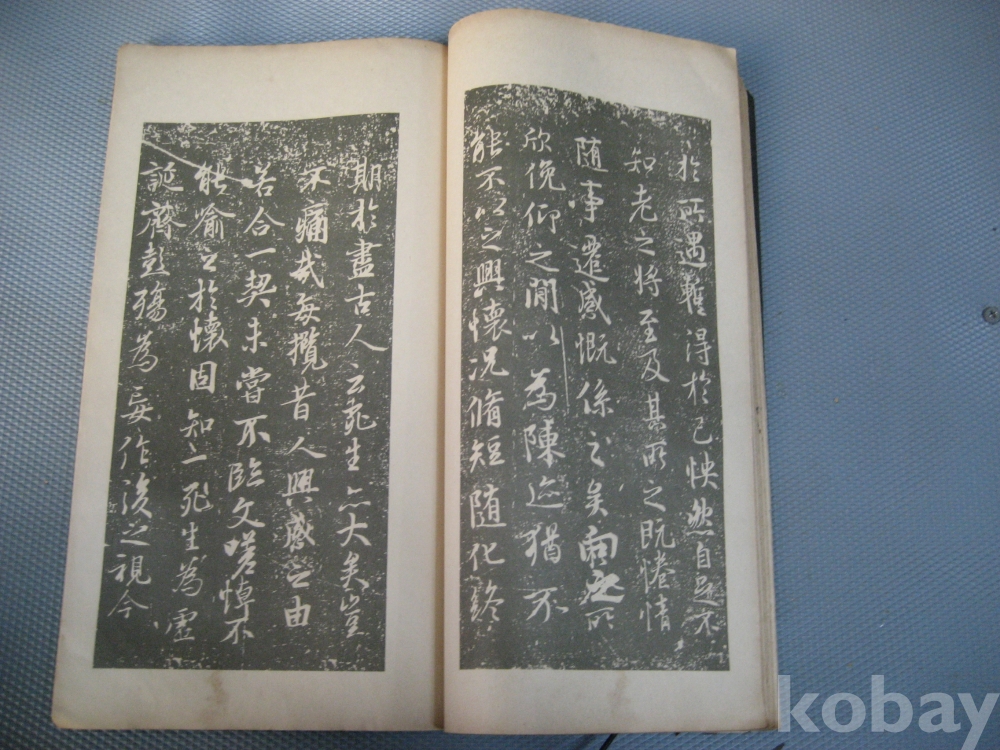 於所遇暫得於己怏然自足不
知老之將至及其所之既惓情
随事遷感慨係之矣向之所
欣俛仰之閒以為陳迹猶不
能不以之興懷況脩短随化終
期於盡古人云死生亦大矣豈
不痛哉每攬昔人興感之由
若合一契未嘗不臨文嗟悼不
能喻之於懷固知一死生為虛
誕齊彭殤為妄作後之視今
kobay